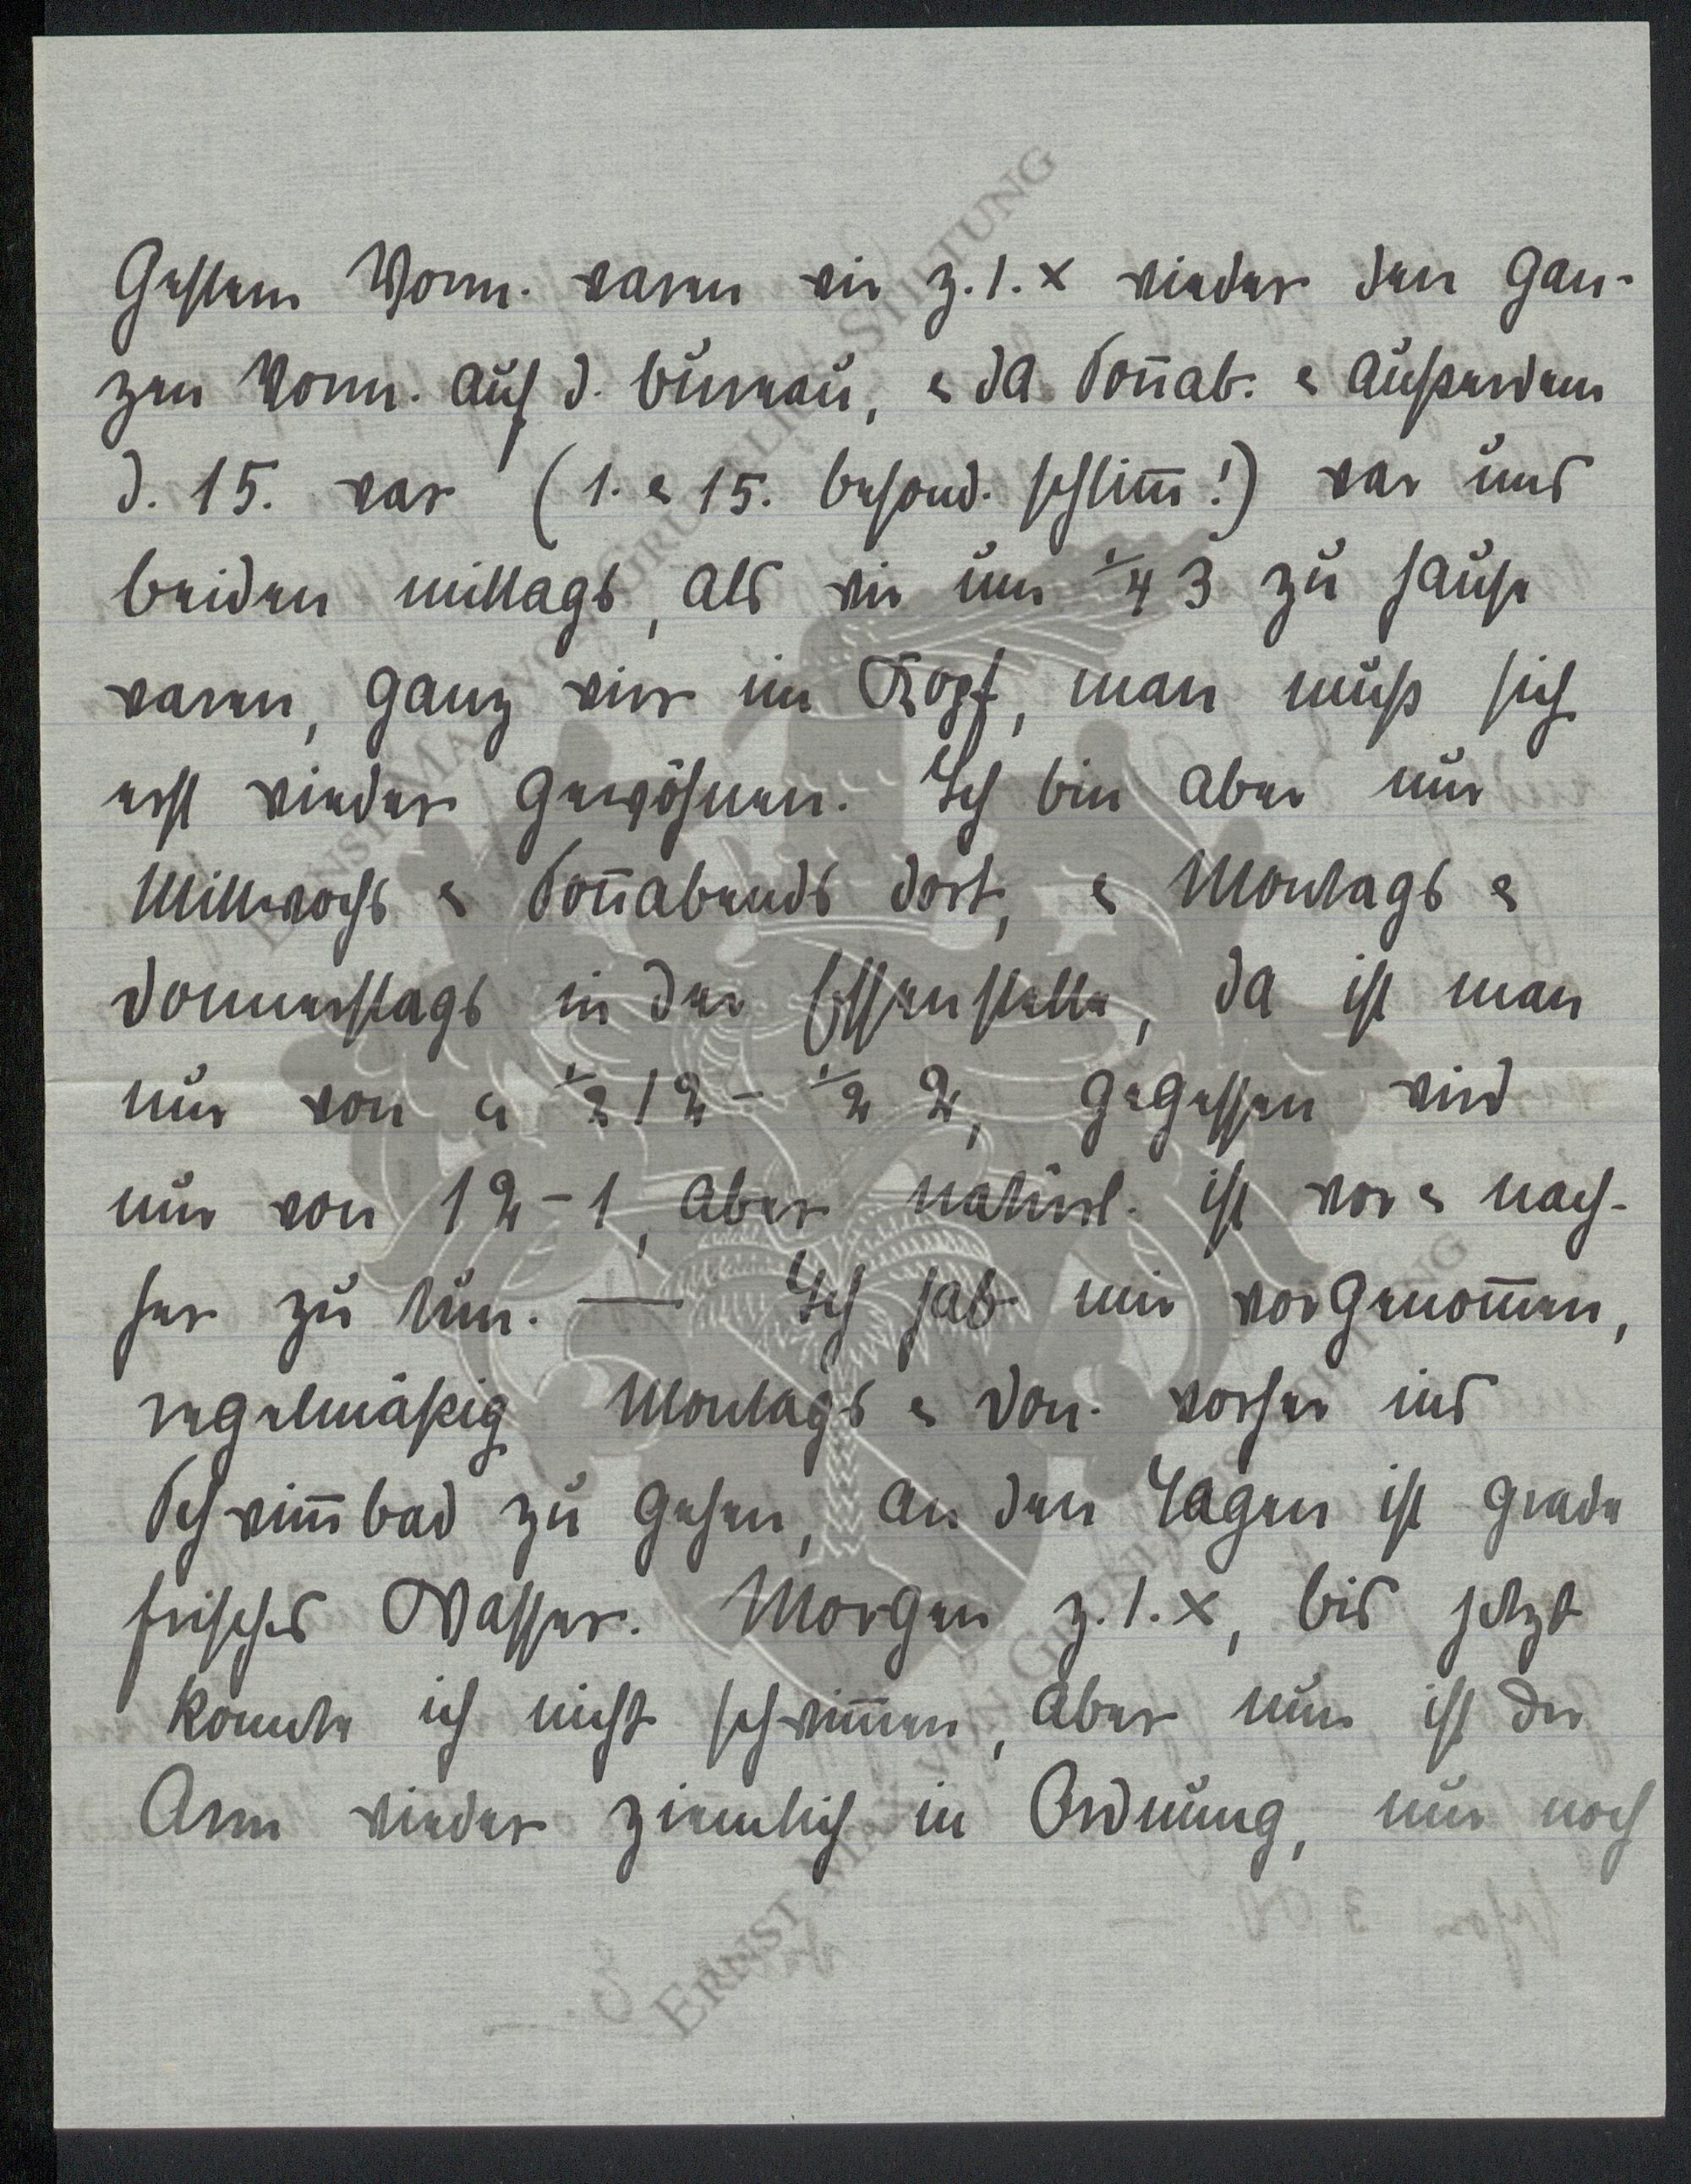 Gestern Vorm. waren wir z. 1. x wieder den gan-
zen Vorm. auf d. Bureau, & da Soñab. & außerdem
d. 15. war (1. & 15. besond. schlim̅!) war uns
beiden mittags, als wir um 1/4 3 zu hause
waren, ganz wirr im Kopf, man muß sich
erst wieder gewöhnen. Ich bin aber nur
Mittwochs & Soñabends dort, & Montags &
Donnerstags in der Essenstelle, da ist man
nur von c 1/2 12 - 1/2 2, gegessen wird
nur von 12 - 1, aber natürl. ist vor & nach-
her zu tun. — Ich hab mir vorgenom̅en,
regelmäßig Montags & Don. vorher ins
Schwim̅bad zu gehen, an den Tagen ist grade
frisches Wasser. Morgen z. 1. x, bis jetzt
konnte ich nicht schwim̅en, aber nun ist der
Arm wieder ziemlich in Ordnung, nur noch
ERNST MAX VON GRUNELIUS-STIFTUNG
ERNST MAX VON GRUNELIUS-STIFTUNG